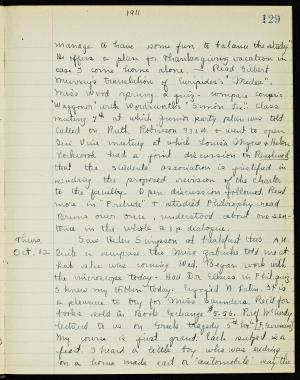 1911
129
manage to have some fun to balance the study."
He offers a plan for Thanksgiving vacation in
case I come home alone. — Read Gilbert
Murray's translation of Euripides's "Medea".
Miss Wood sprung a quiz - compare Cowper's
Waggoner with Wordsworth's "Simon Lee". Class
meeting 7th at which Junior party plan was told.
Called on Ruth Robinson 33 A. & went to open
Sic Vice meeting at which Louisa Myers & Helen
Lockwood had a joint discussion on Resolved
that the students association is justified in
sending the proposed revision of the charter
to the faculty. Open discussion followed. Read
more in "Prelude" & studied Philosophy - read
Bruno over once, understood about one sen-
tence in the whole 23 p dialogue.
Thurs.
Oct. 12
Saw Helen Simpson at breakfast this A.M.
Quite a surprise tho Miss told me
that she was coming Wed. Began work with
the microscope today. Had Dr. in Phil. quiz.
I knew my today. Enjoyed is
a pleasure to for Miss Saunders. Rec'd for
books sold in Book Exchange $5.56. Prof.
lectured to us on Greek tragedy 5th hr.
My course is just grand. Each subject is a
feast. I heard a little boy who was riding
on a home made cart or "automobile" say the